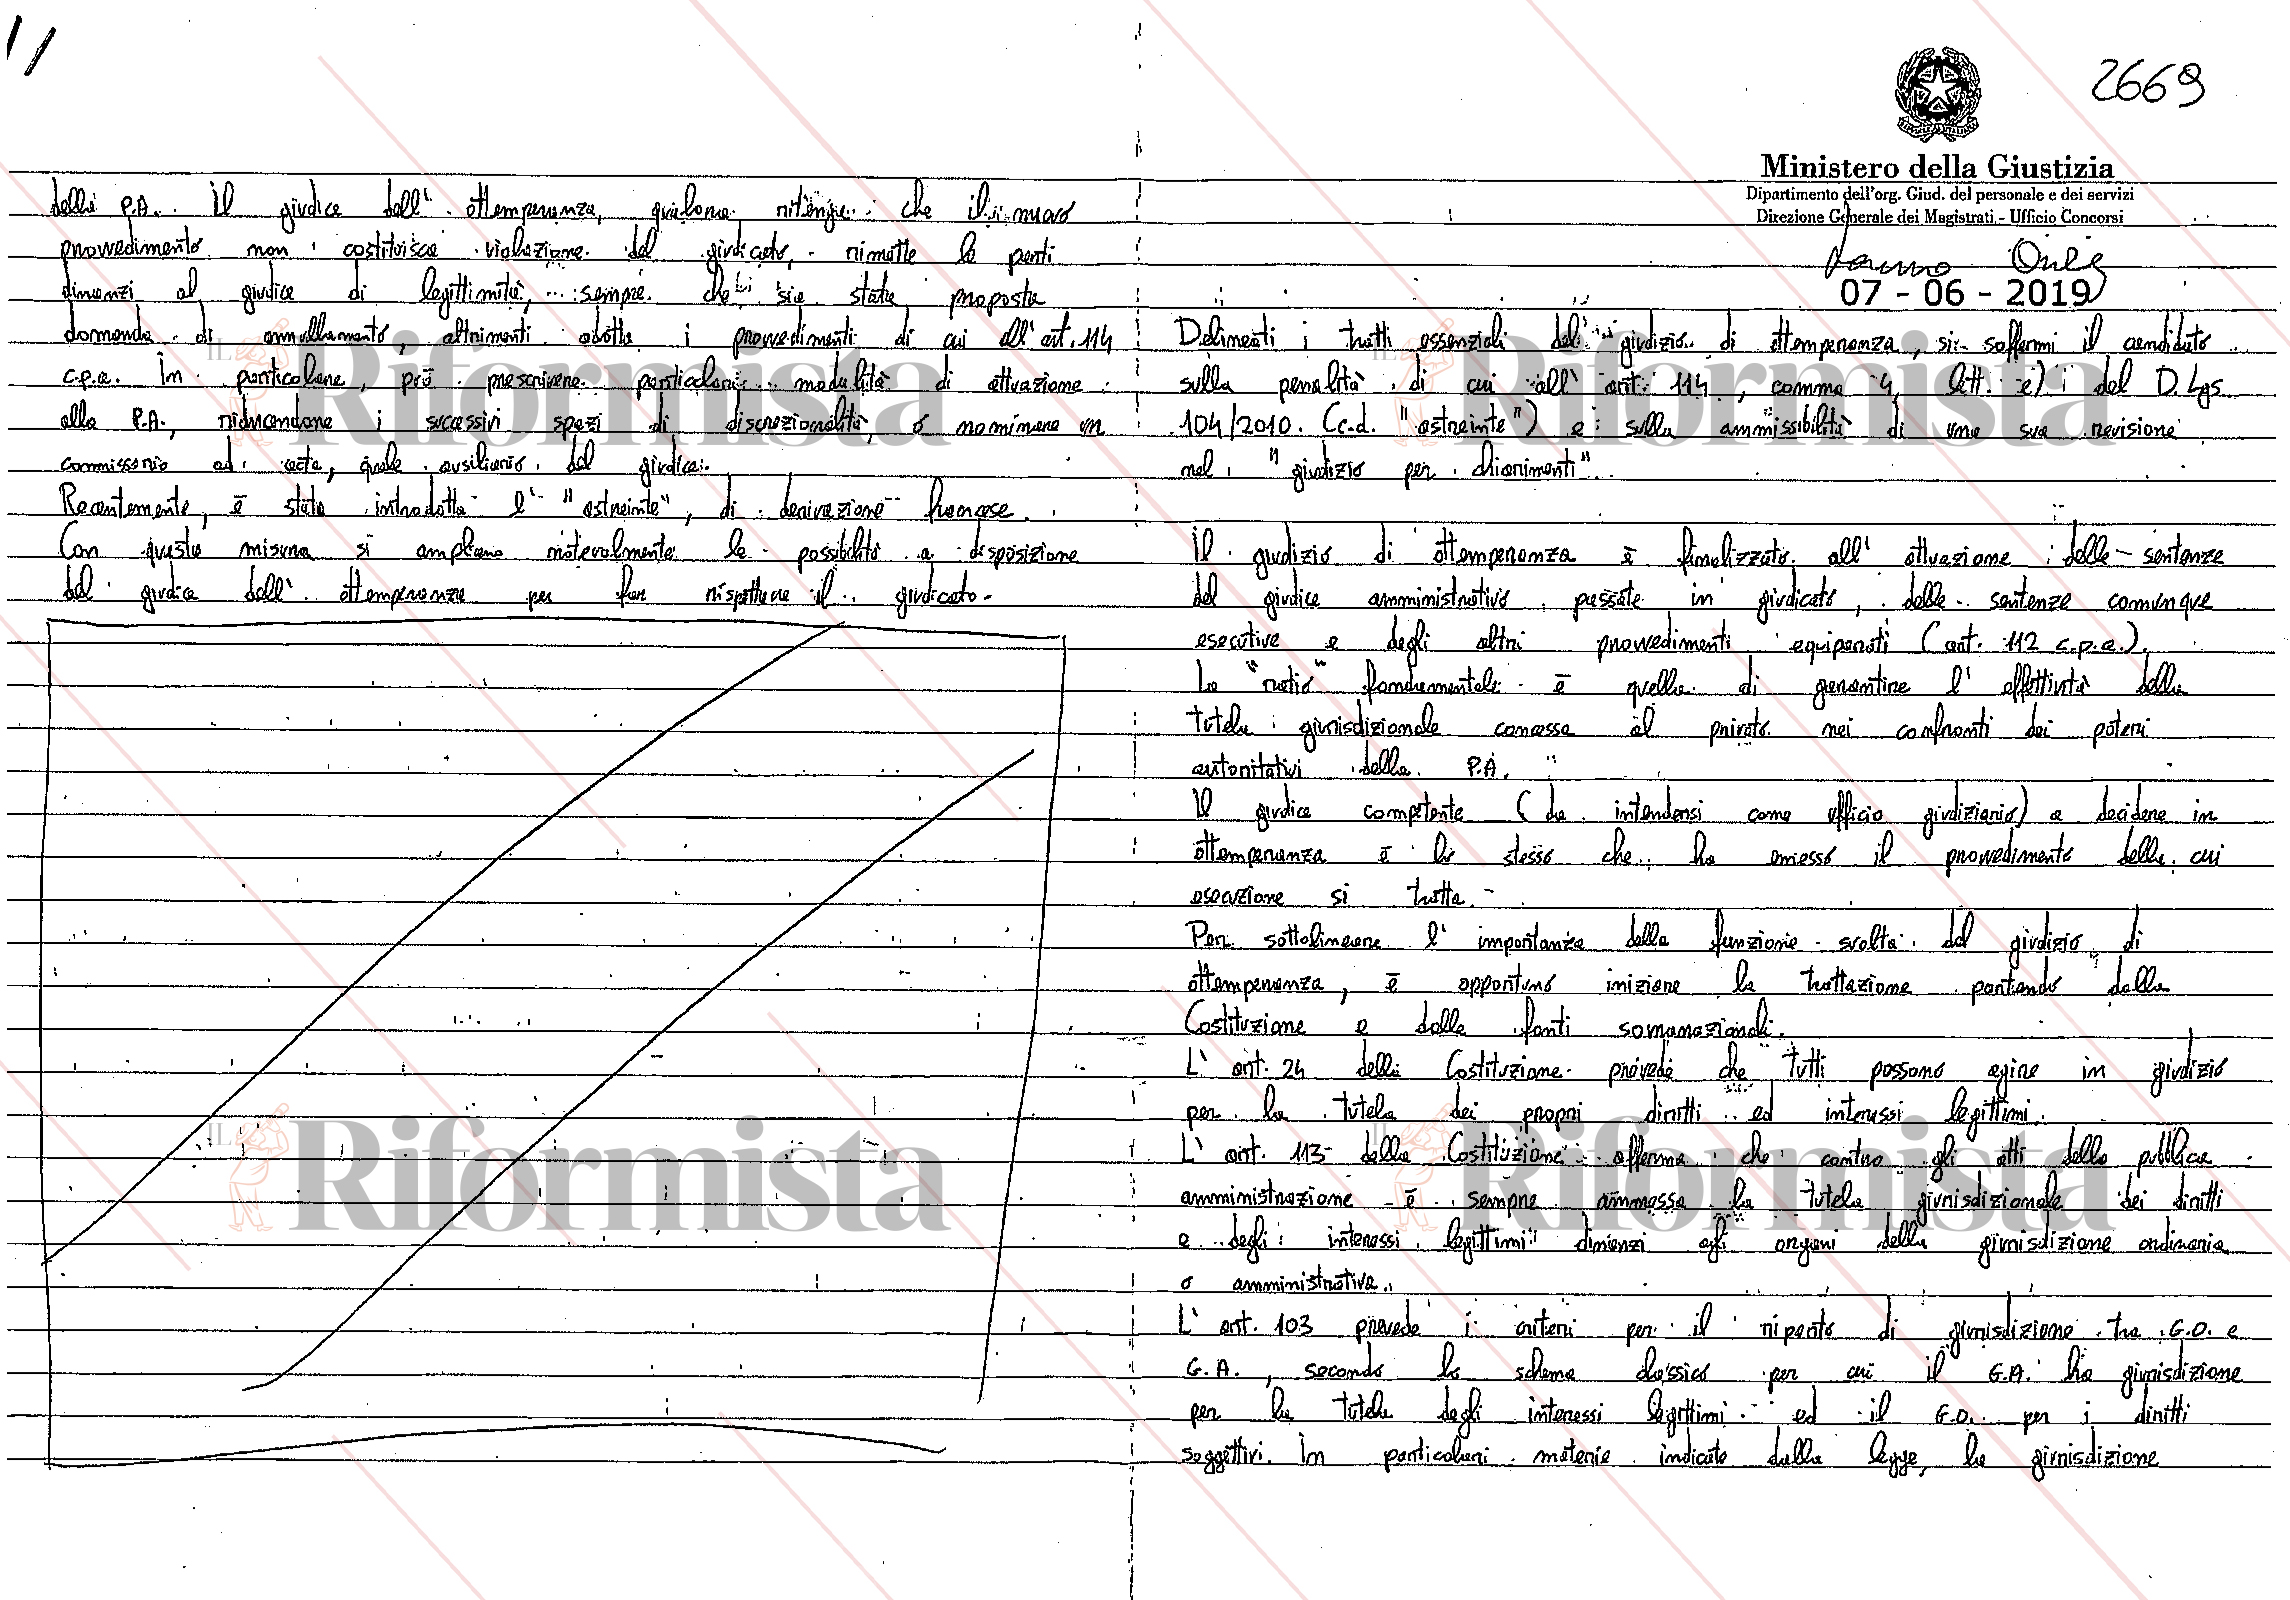 della P.A.. Il giudice dell'ottemperanza, qualora ritenga che il nuovo
provvedimento non costituisca violazione del giudicato, rimette le parti
dinanzi al giudice di legittimità, sempre che sia stata proposta
domanda di annullamento, altrimenti adotta i provvedimenti di cui all'art. 114
c.p.a. In particolare, può prescrivere particolari modalità di attuazione
alla P.A., riducendone i successivi spazi di discrezionalità, o nominare un
commissario ad acta, quale ausiliario del giudice.
Recentemente, è stata introdotta l'"astreinte", di derivazione francese.
Con questa misura si ampliano notevolmente le possibilità a disposizione
del giudice dell'ottemperanza per far rispettare il giudicato.
2669
Ministero della Giustizia
Dipartimento dell'org. Giud. del personale e dei servizi
Direzione Generale dei Magistrati - Ufficio Concorsi
07 - 06 - 2019
Delineati i tratti essenziali del giudizio di ottemperanza, si soffermi il candidato
sulla penalità di cui all'art. 114, comma 4, lett. e) del D.Lgs.
104/2010 (c.d. "astreinte") e sulla ammissibilità di una sua revisione
nel "giudizio per chiarimenti".
Il giudizio di ottemperanza è finalizzato all'attuazione delle sentenze
del giudice amministrativo passate in giudicato, delle sentenze comunque
esecutive e degli altri provvedimenti equiparati (art. 112 c.p.a.).
La "ratio" fondamentale è quella di garantire l'effettività della
tutela giurisdizionale concessa al privato nei confronti dei poteri
autoritativi della P.A.
Il giudice competente (da intendersi come ufficio giudiziario) a decidere in
ottemperanza è lo stesso che ha emesso il provvedimento della cui
esecuzione si tratta.
Per sottolineare l'importanza della funzione svolta dal giudizio di
ottemperanza, è opportuno iniziare la trattazione partendo dalla
Costituzione e dalle fonti sovranazionali.
L'art. 24 della Costituzione prevede che tutti possono agire in giudizio
per la tutela dei propri diritti ed interessi legittimi.
L'art. 113 della Costituzione afferma che contro gli atti della pubblica
amministrazione è sempre ammessa la tutela giurisdizionale dei diritti
e degli interessi legittimi dinanzi agli organi della giurisdizione ordinaria
o amministrativa.
L'art. 103 prevede i criteri per il riparto di giurisdizione tra G.O. e
G.A., secondo lo schema classico per cui il G.A. ha giurisdizione
per la tutela degli interessi legittimi ed il G.O. per i diritti
soggettivi. In particolari materie indicate dalla legge, la giurisdizione
IL Riformista
IL Riformista
IL Riformista
IL Riformista